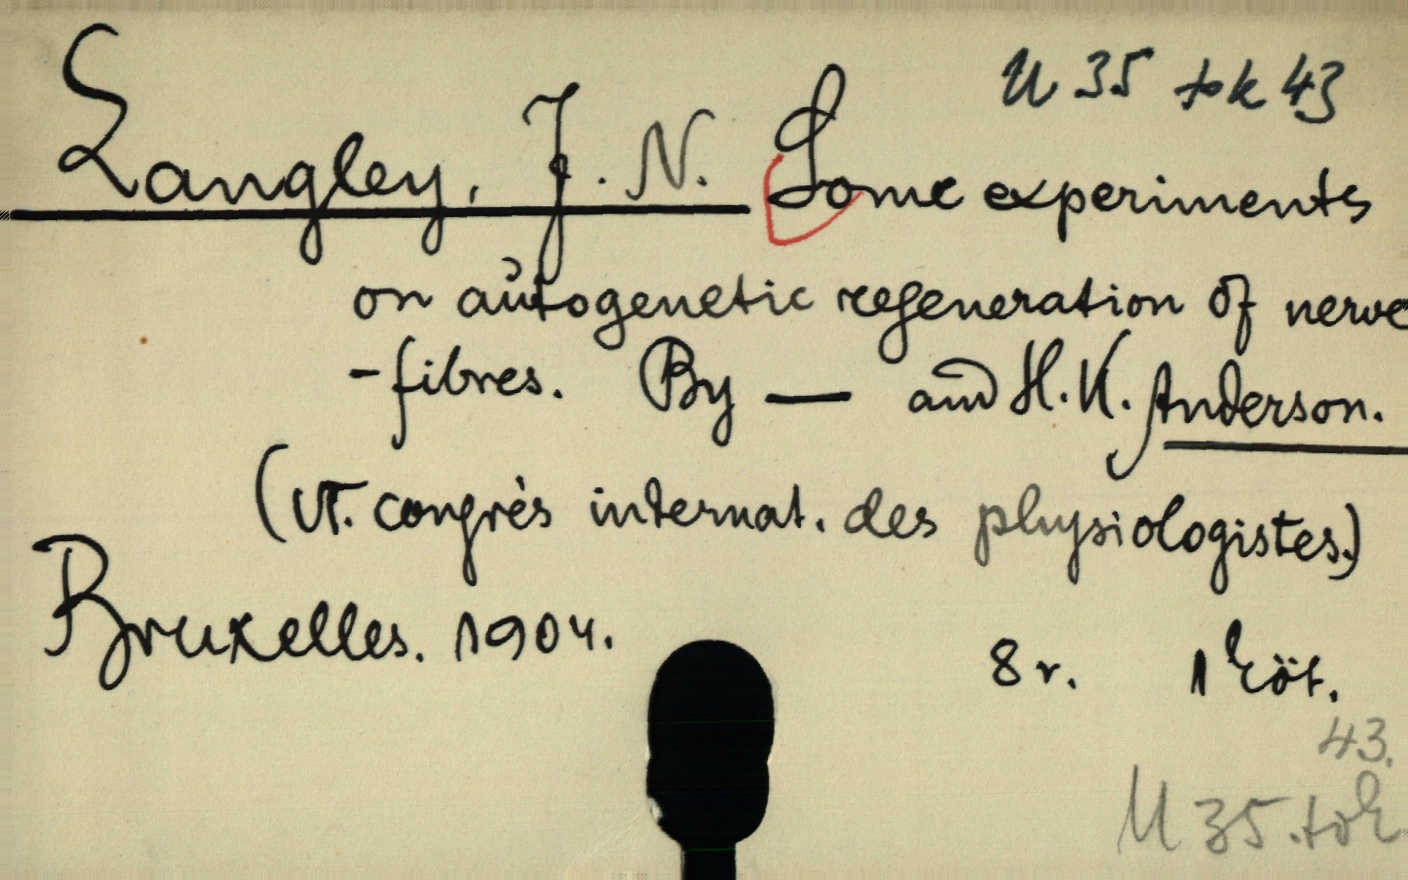 U 35 tok 43
Langley, J. N. Some experiments
on autogenetic regeneration of nerve
-fibres. By — and H. K. Anderson.
(VI. congrès internat. des physiologistes.)
Bruxelles. 1904.
8 r. 1 köt.
43.
U 35. tok